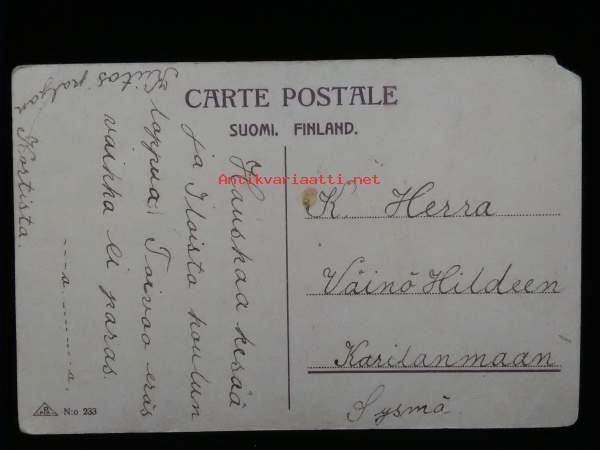 CARTE POSTALE
SUOMI. FINLAND.
Antikvariaatti.net
Hauskaa kesää
ja Iloista koulun
loppua! Toivoo eräs
vaikka ei paras.
---a ------a.
Kiitos paljon
Kortista.
K. Herra
Väinö Hildeen
Karilanmaan
Sysmä.
N:o 233